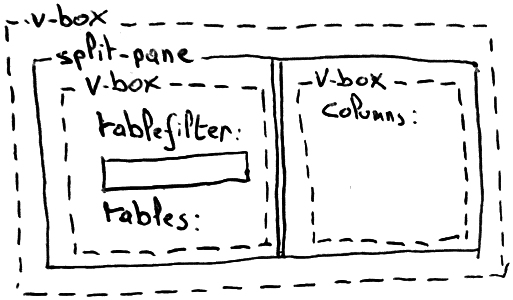 v-box
split-pane
v-box
tablefilter:
tables:
v-box
columns: